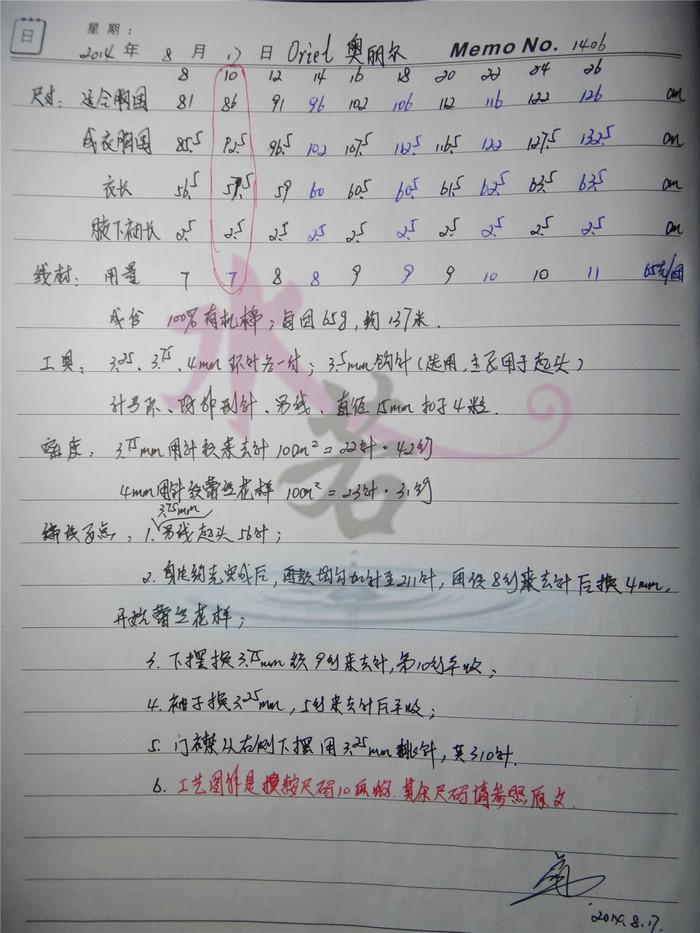 日 星期:
2014年 8月 17日 Oriel 奥丽尔 Memo No. 1406
8 10 12 14 16 18 20 22 24 26
尺寸: 适合胸围 81 86 91 96 102 106 112 116 122 126 cm
成衣胸围 85.5 92.5 96.5 102 107.5 112.5 116.5 122 127.5 132.5 cm
衣长 56.5 57.5 59 60 60.5 60.5 61.5 62.5 63.5 63.5 cm
腋下袖长 2.5 2.5 2.5 2.5 2.5 2.5 2.5 2.5 2.5 2.5 cm
线材: 用量 7 7 8 8 9 9 9 10 10 11 65克/团
成份 100%有机棉; 每团65g, 约137米.
工具: 3.25、3.75、4mm环针各一付; 3.5mm钩针(选用, 主要用于起头)
针号环、防脱别针、另线、直径15mm扣子4粒.
密度: 3.75mm用针织来去针 10cm² = 22针·42行
4mm用针织蕾丝花样 10cm² = 23针·31行
3.75mm
编织要点: 1. 另线起头56针;
2. 育克约克完成后, 均匀加针至211针, 再织8行来去针后换4mm,
开始蕾丝花样;
3. 下摆换3.75mm织9行来去针, 第10行平收;
4. 袖子换3.25mm, 5行来去针后平收;
5. 门襟从右侧下摆用3.25mm挑针, 共310针.
6. 工艺图解是按尺码10画的. 其余尺码请参照原文.
水若
2014.8.17.